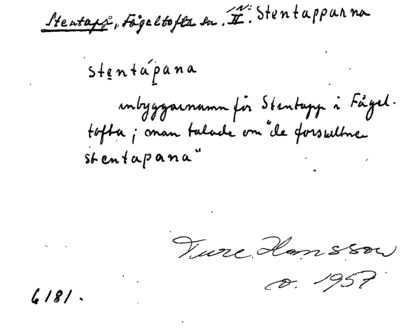 Stentapp, Fågeltofta sn. IN: II. Stentapparna
stentápana
inbyggarnamn för Stentapp i Fågel-
tofta; man talade om "de forsultne
stentapana"
Ture Hansson
o. 1957
6181.